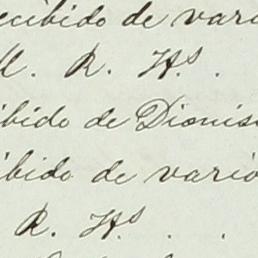 ecibido de vario
M. R. Hs.
ibido de Dionis
ibido de vario
R. Hs . .